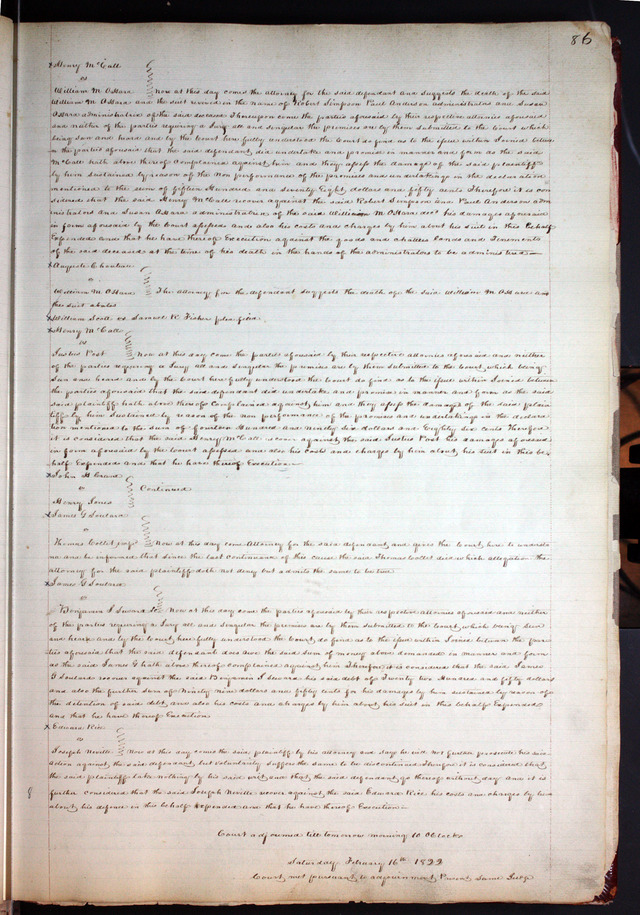 86
Henry McCall
vs
William M OHara Now at this day comes the attorney for the said defendant and suggests the death of the said
William M OHara and the suit revived in the name of Robert Simpson Paul Anderson administrators and Susan
OHara administratrix of the said deceased Thereupon come the parties aforesaid by their respective attornies aforesaid
and neither of the parties requiring a Jury all and singular the premises are by them submitted to the Court which
being seen and heard and by the Court here fully understood the Court do find as to the issue within Joined between
the parties aforesaid that the said defendant did undertake and promise in manner and form as the said
McCall hath above thereof complained against him and they assess the damages of the said plaintiff
by him sustained by reason of the non performance of the promises and undertakings in the declaration
mentioned to the sum of fifteen Hundred and Seventy Eight dollars and fifty cents Therefore it is con
sidered that the said Henry McCall recover against the said Robert Simpson and Paul Anderson admi
nistrators and Susan OHara administratrix of the said William M OHara decd his damages aforesaid
in form aforesaid by the Court assessed and also his costs and charges by him about his suit in this behalf
Expended and that he have thereof Execution against the goods and chattles Lands and Tenements
of the said deceased at the time of his death in the hands of the administrators to be administered
Auguste Chouteau
vs
William M OHara The attorney for the defendant suggests the death of the said William M OHara and
the suit abates
William Scott vs Samuel R Fisher plea filed
Henry McCall
vs
Justus Post Now at this day come the parties aforesaid by their respective attornies aforesaid and neither
of the parties requiring a Jury all and singular the premises are by them submitted to the Court, which being
Seen and heard and by the Court here fully understood the Court do find as to the issue within Joined between
the parties aforesaid that the said defendant did undertake and promise in manner and form as the said
said plaintiff hath above thereof Complained against him and they assess the damages of the said plain
tiff by him Sustained by reason of the non performance of the promises and undertakings in the declara
tion mentioned to the sum of fourteen Hundred and Ninety Six dollars and Eighty six Cents Therefore
it is considered that the said Henry McCall recover against the said Justus Post his damages aforesaid
in form aforesaid by the Court assessed and also his costs and charges by him about his suit in this be
half Expended and that he have thereof Execution
John H
vs Continued
Henry Jones
James G Soulard
vs
Thomas Now at this day come Attorney for the said defendant and gives the Court here to understa
nd and be informed that since the last Continuance of this cause the said Thomas died which allegation the
attorney for the said plaintiff doth not deny but admits the same to be true
James G Soulard
vs
Benjamin Now at this day come the parties aforesaid by their respective attornies aforesaid and neither
of the parties requiring a Jury all and Singular the premises are by them submitted to the Court which being Seen
and heard and by the Court here fully understood the Court do find as to the issue within Joined between the par
ties aforesaid that the said defendant does owe the said Sum of money above demanded in manner and form
as the said James G hath above thereof complained against him Therefore it is considered that the said James
G Soulard recover against the said Benjamin his said debt of Twenty two Hundred and fifty dollars
and also the further sum of Ninety Nine dollars and fifty cents for his damages by him sustained by reason of
the detention of said debt and also his costs and charges by him about his suit in this behalf Expended
and that he have thereof Execution
Edward Rice
vs
Joseph Neville Now at this day comes the said plaintiff by his attorney and says he will not further prosecute his said
action against the said defendant but voluntarily suffers the same to be discontinued Therefore it is considered that
the said plaintiff take nothing by his said writ and that the said defendant go thereof without day and it is
further considered that the said Joseph Neville recover against the said Edward Rice his costs and charges by him
about his defence in this behalf Expended and that he have thereof Execution
Court adjourned till tomorrow morning 10 OClock
Saturday February 16th 1822
Court met pursuant to adjournment Present Same Judge